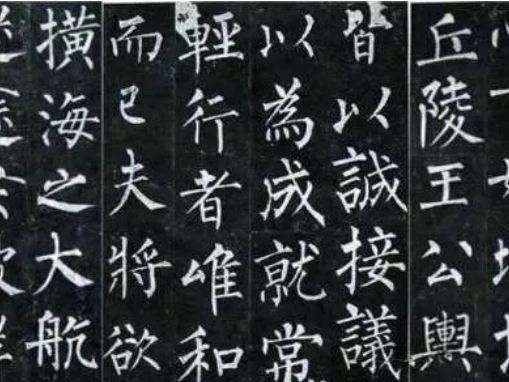 丘陵王公輿
皆以誠接議
以為成就常
輕行者唯和
而已夫將欲
橫海之大航